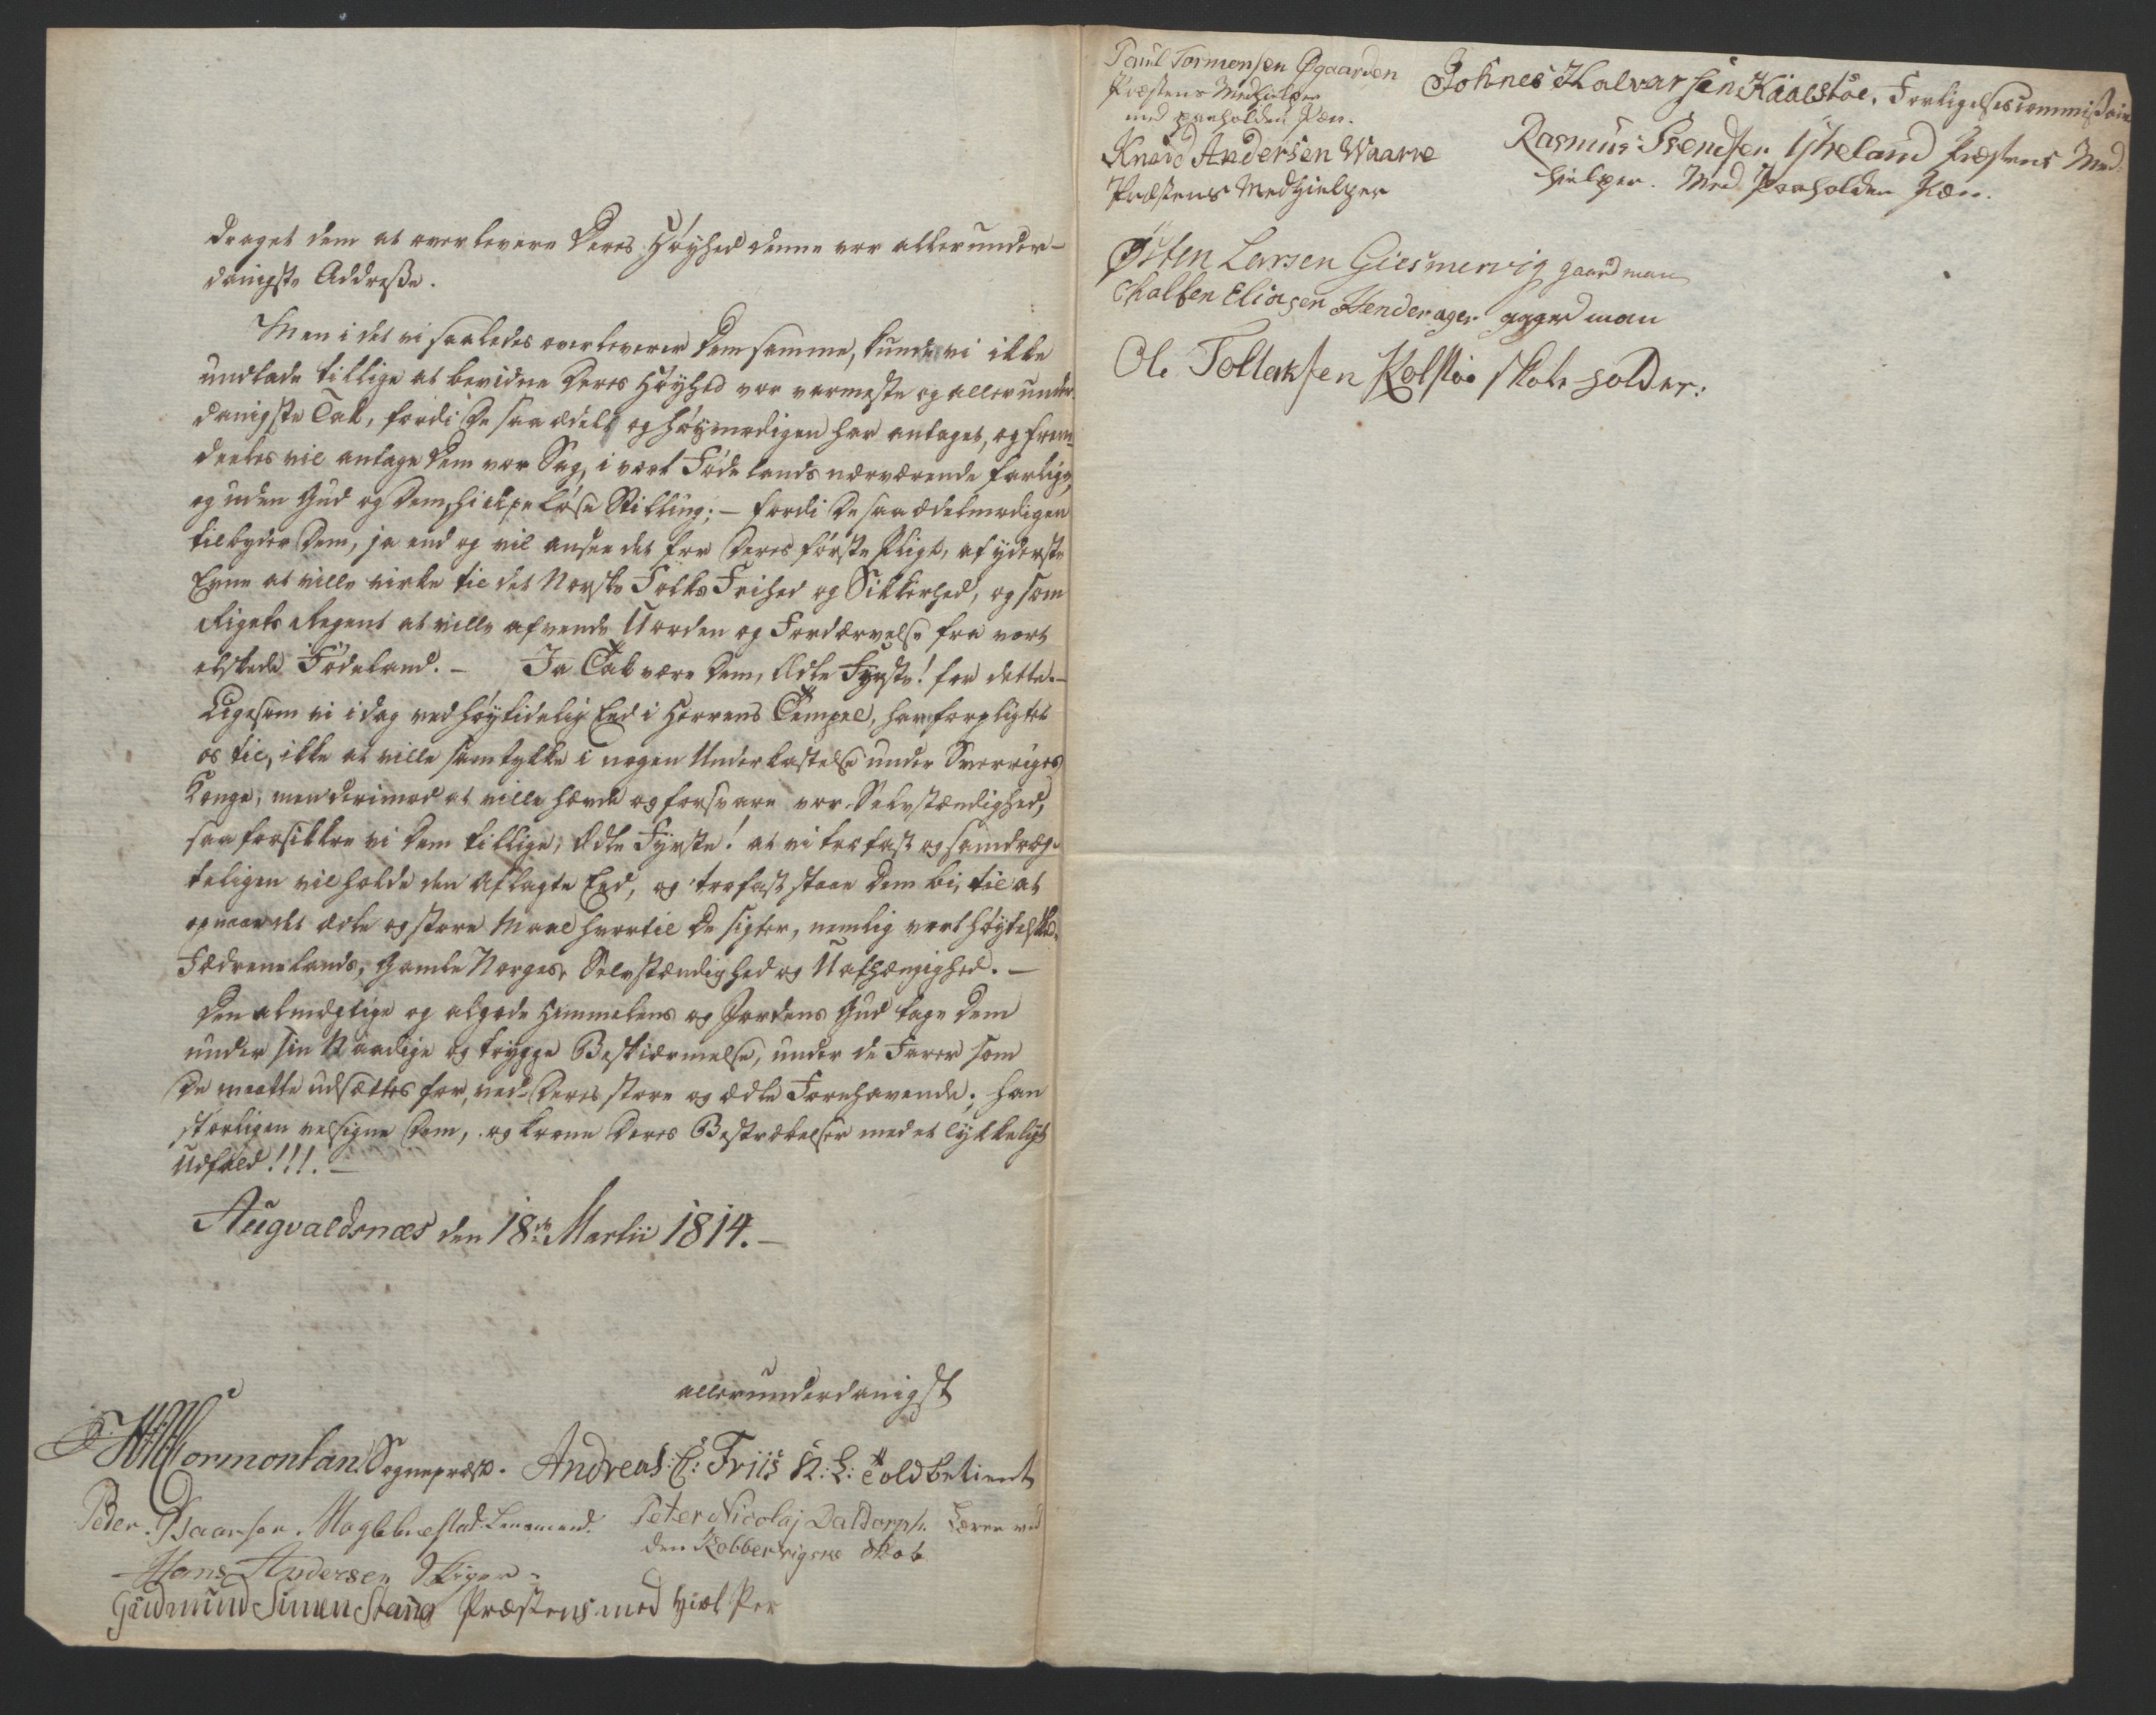 draget dem at overlevere Deres Høyhed denne vor allerunder-
danigste Addresse.
Men i det vi saaledes overleverer Dem samme, kunde vi ikke
undlade tillige at bevidne Deres Høyhed vor varmeste og allerunder-
danigste Tak, fordi De saa ædelt og høymodigen har antaget, og frem-
deeles vil antage Dem vor Sag, i vort Føde lands nærværende farlige,
og uden Gud og Dem, hielpeløse Stilling; – fordi De saa ædelmodigen
tilbyder Dem, ja end og vil ansee det for Deres første Pligt, af yderste
Evne at ville virke til det Norske Folks Frihed og Sikkerhed, og som
Rigets Regent at ville afvende Uorden og Fordærvelse fra vort
elskede Fødeland. – Ja Tak være Dem, Ædle Fyrste! for dette. –
Ligesom vi i dag ved høytidelig Eed i Herrens Tempel, har forpligtet
os til, ikke at ville samtykke i nogen Underkastelse under Sverriges
Konge, men derimod at ville hævde og forsvare vor Selvstændighed,
saa forsikkre vi Dem tillige, Ædle Fyrste! at vi troefast og samdræg-
teligen vil holde den aflagte Eed, og trofast staae Dem bi, til at
opnaae det ædle og store Maal hvortil De sigter, nemlig vort høytelskede
Fædrenelands, Gamle Norges, Selvstændighed og Uafhængighed. –
Den almægtige og algode Himmelens og Jordens Gud tage Dem
under sin Naadige og trygge Beskiærmelse, under de Farer som
De maatte udsættes for, ved Deres store og ædle Forehavende; han
storligen velsigne Dem, og krone Deres Bestræbelser med et lykkeligt
Udfald!!!. –
Augvaldsnæs den 18de Martii 1814. –
allerunderdanigst
Cormontan Sognepræst. Andreas: C: Friis K: L: Toldbetient
Peder Baarsen Maglebuestad Lensmand. Peter Nicolaj Daldorph. Lærer ved
den Kobbervigske Skole
Hans Andersen
Gudmund Simen Stang Præstens med hiel Per
Paul Tormensen Øgaarden
Præstens Medhielper
med paaholden Pen.
Knud Andersen Waarre
Præstens Medhielper
Johnes Halvarsen Kaalstøe, Forligelsescommissair
Rasmus Svendsen Præstens Med-
hielper. Med Paaholden Pæn.
Østen Larsen Giesmervig gaardman
Chalben Eliasen Henderager gaard man
Ole Tollaksen Kolstøe Skole holder.